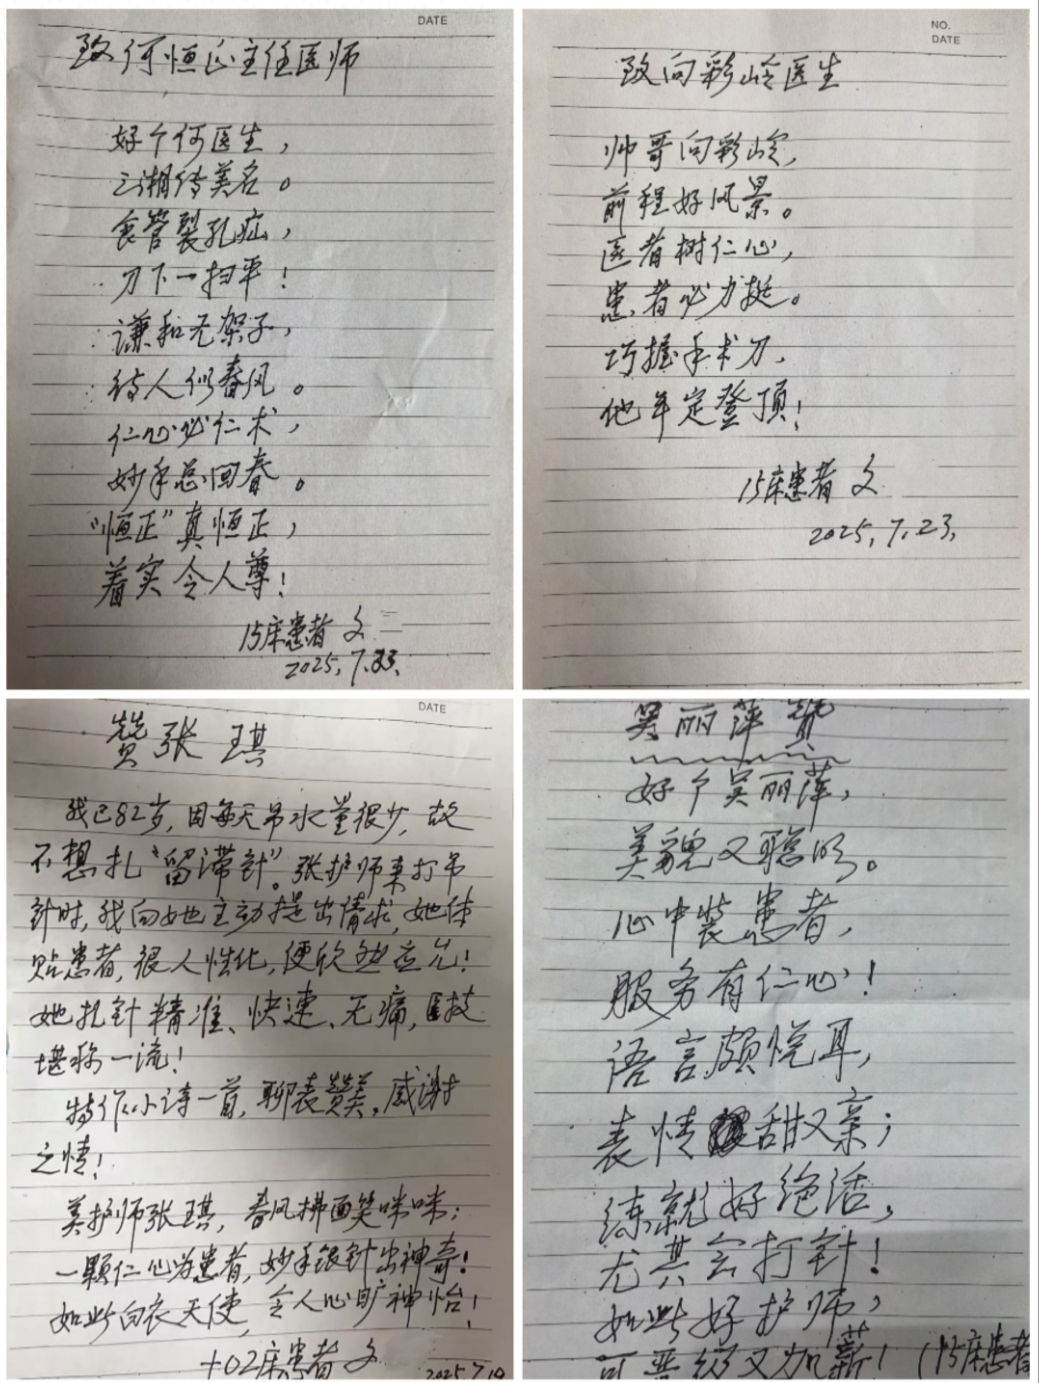 DATE
致何恒正主任医师
好个何医生，
三湘传美名。
食管裂孔疝，
刀下一扫平！
谦和无架子，
待人似春风。
仁心必仁术，
妙手总回春。
“恒正”真恒正，
着实令人尊！
15床患者 文
2025.7.23.
NO.
DATE
致向彩岭医生
帅哥向彩岭，
前程好风景。
医者树仁心，
患者必力挺。
巧握手术刀，
他年定登顶！
15床患者 文
2025.7.23.
DATE
赞张琪
我已82岁，因每天吊水量很少，故
不想扎“留滞针”。张护师来打吊
针时，我向她主动提出请求，她体
贴患者，很人性化，便欣然应允！
她扎针精准、快速、无痛，医技
堪称一流！
特作小诗一首，聊表赞美，感谢
之情！
美护师张琪，春风拂面笑咪咪；
一颗仁心为患者，妙手银针出神奇！
如此白衣天使，令人心旷神怡！
+02床患者 文
2025.7.19
吴丽萍赞
好个吴丽萍，
美貌又聪明。
心中装患者，
服务有仁心！
语言颇悦耳，
表情甜又亲；
练就好绝活，
尤其会打针！
如此好护师，
可晋级又加薪！（15床患者